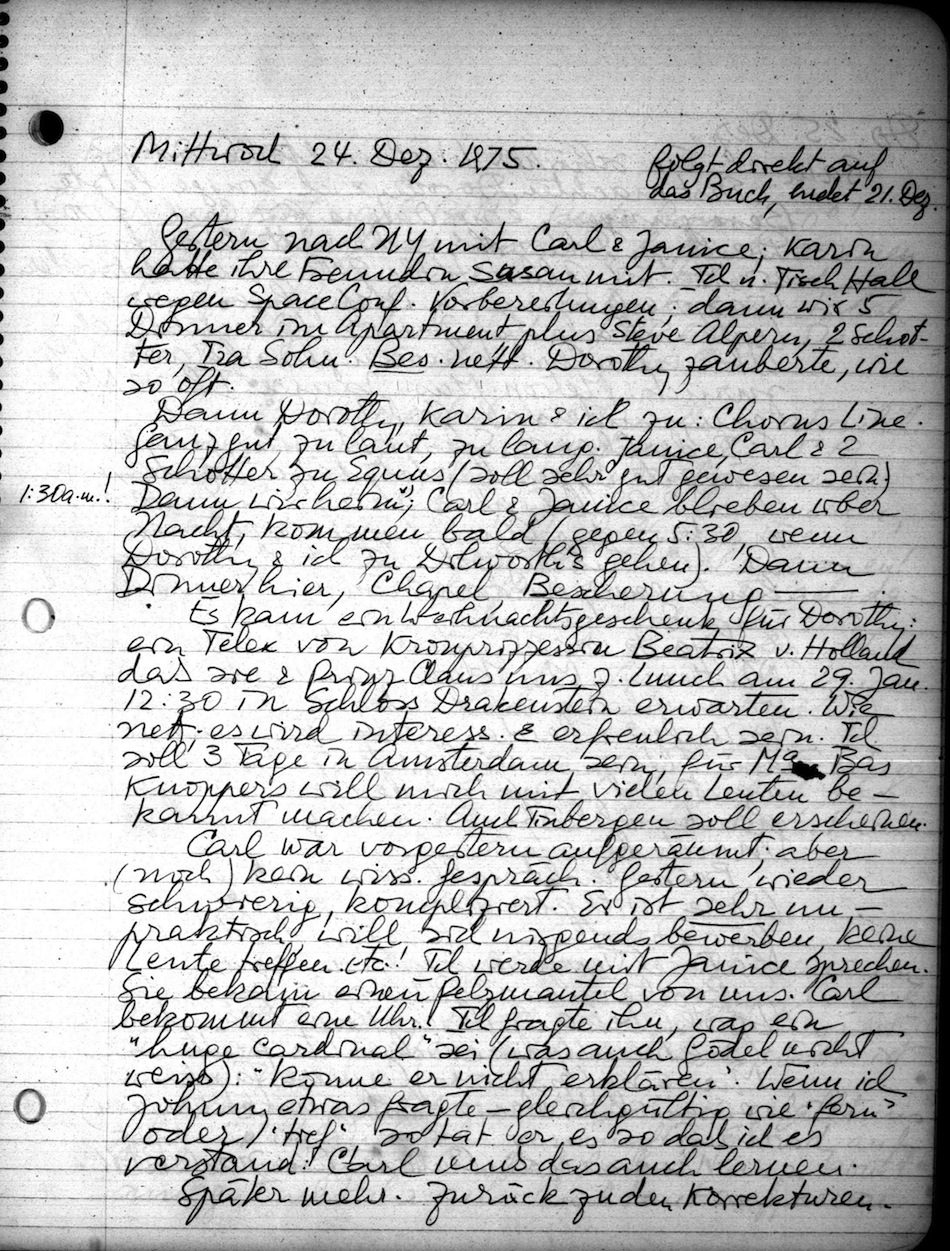 Mittwoch 24. Dez. 1975.
folgt direkt auf
das Buch, endet 21. Dez.
Gestern nach NY mit Carl & Janice; Karin
hatte ihre Freundin Susan mit. Ich n. Tisch Hall
wegen Space Conf. Vorbereitungen; dann wir 5
Dinner im Apartment plus Steve Alpern, 2 Schot-
ter, Ira Sohn. Bes. nett. Dorothy zauberte, wie
so oft.
Dann Dorothy, Karin & ich zu: Chorus Line.
Ganz gut, zu laut, zu lang. Janice, Carl & 2
Schotter zu Equus (soll sehr gut gewesen sein)
1:30 a.m.!
Dann wir heim; Carl & Janice blieben über
Nacht, kommen bald (gegen 5:30, wenn
Dorothy & ich zu Dilworths gehen). Dann
Dinner hier, Chapel Bescherung —.
Es kam ein Weihnachtsgeschenk für Dorothy:
ein Telex von Kronprizessin Beatrix v. Holland
das sie & Prinz Claus uns z. Lunch am 29. Jan.
12:30 in Schloss Drakenstein erwarten. Wie
nett; es wird interess. & erfreulich sein. Ich
soll 3 Tage in Amsterdam sein, für Bas
Knoppers will mich mit vielen Leuten be-
kannt machen. Auch Tinbergen soll erscheinen.
Carl war vorgestern aufgeräumt. aber
(noch) kein wiss. Gespräch. Gestern wieder
schwierig, kompliziert. Er ist sehr un-
praktisch, will sich nirgends bewerben, keine
Leute treffen etc.! Ich werde mit Janice sprechen.
Sie bekam einen Pelzmantel von uns. Carl
bekommt eine Uhr. Ich fragte ihn, was ein
"huge cardinal" sei (was auch Gödel nicht
weiss): "könne er nicht erklären". Wenn ich
Johnny etwas fragte – gleichgültig wie 'fern'
oder 'tief' so tat er es so daß ich es
verstand! Carl muss das auch lernen.
Später mehr. Zurück zu den Korrekturen.